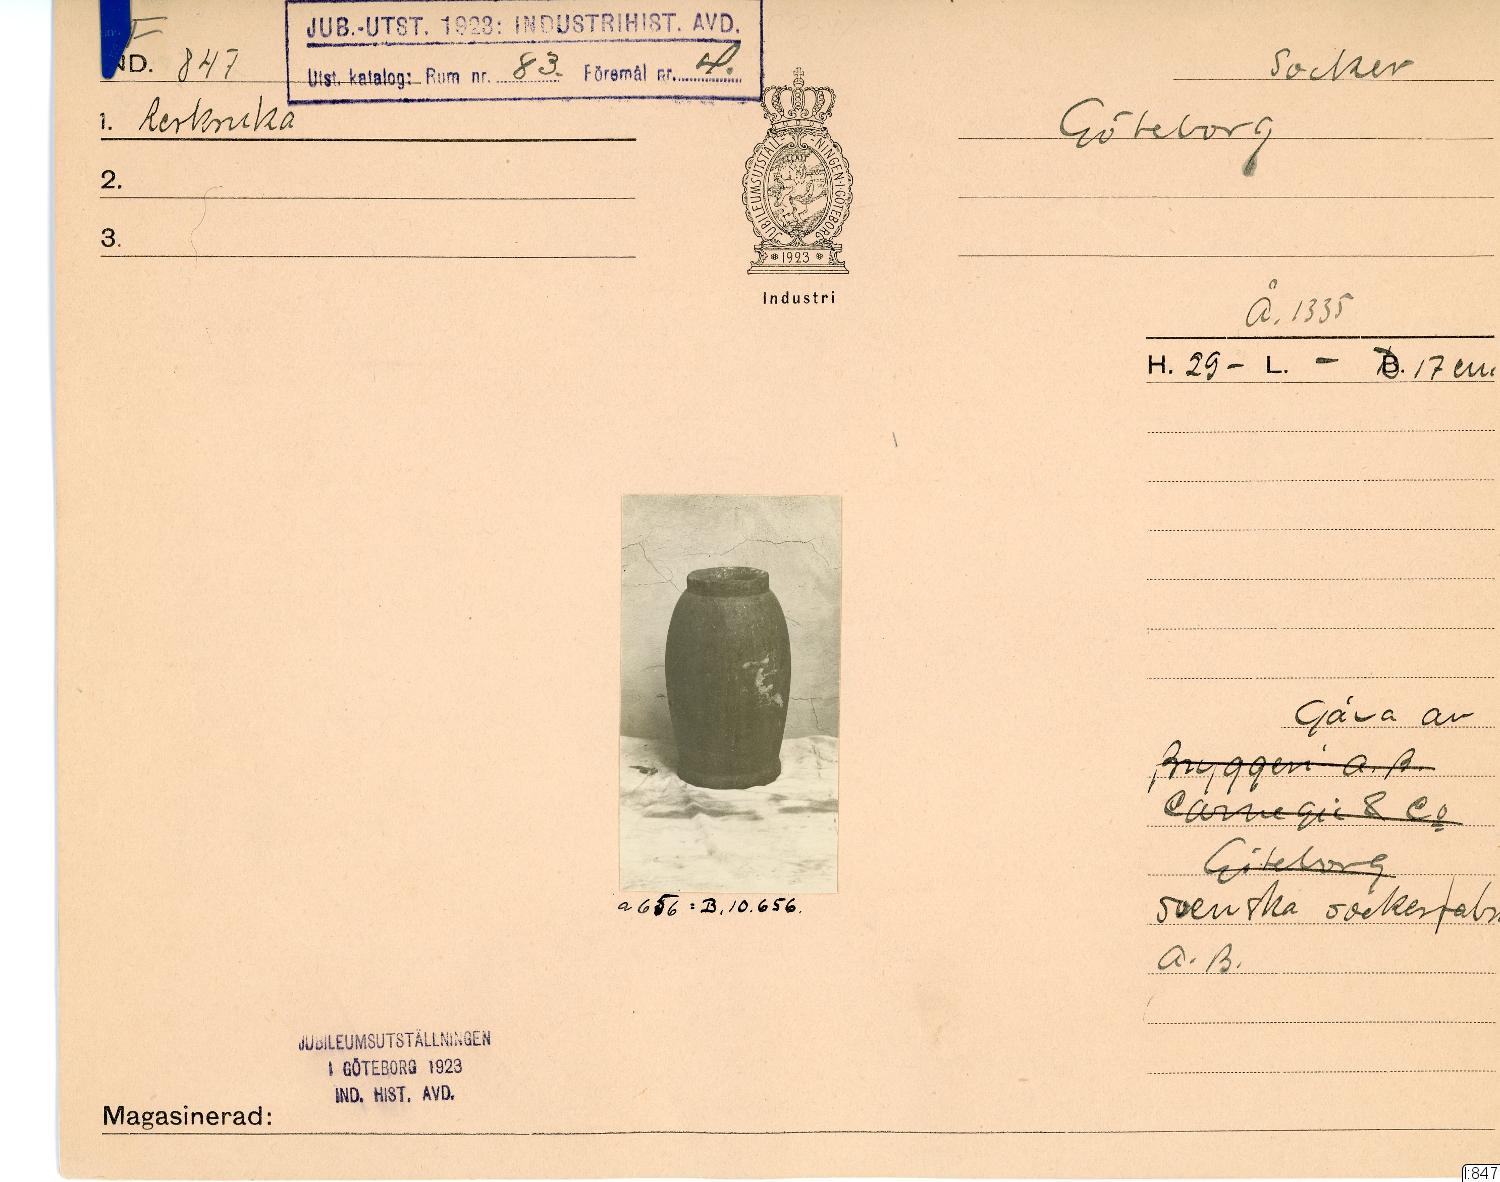 JUB.-UTST. 1923: INDUSTRIHIST. AVD.
Utst. katalog: Rum nr. 83. Föremål nr. 4.
IND. 847
Socker
1.
Göteborg
2.
3.
JUBILEUMSUTSTÄLLNINGEN I GÖTEBORG
1923
Industri
Å. 1335
H. 29 - L. - B. 17 cm.
Gåva av
Bryggeri A. B.
Carnegie & Co
Göteborg
Svenska sockerfabr
A. B.
a656 = B. 10.656.
JUBILEUMSUTSTÄLLNINGEN
I GÖTEBORG 1923
IND. HIST. AVD.
Magasinerad:
I:847